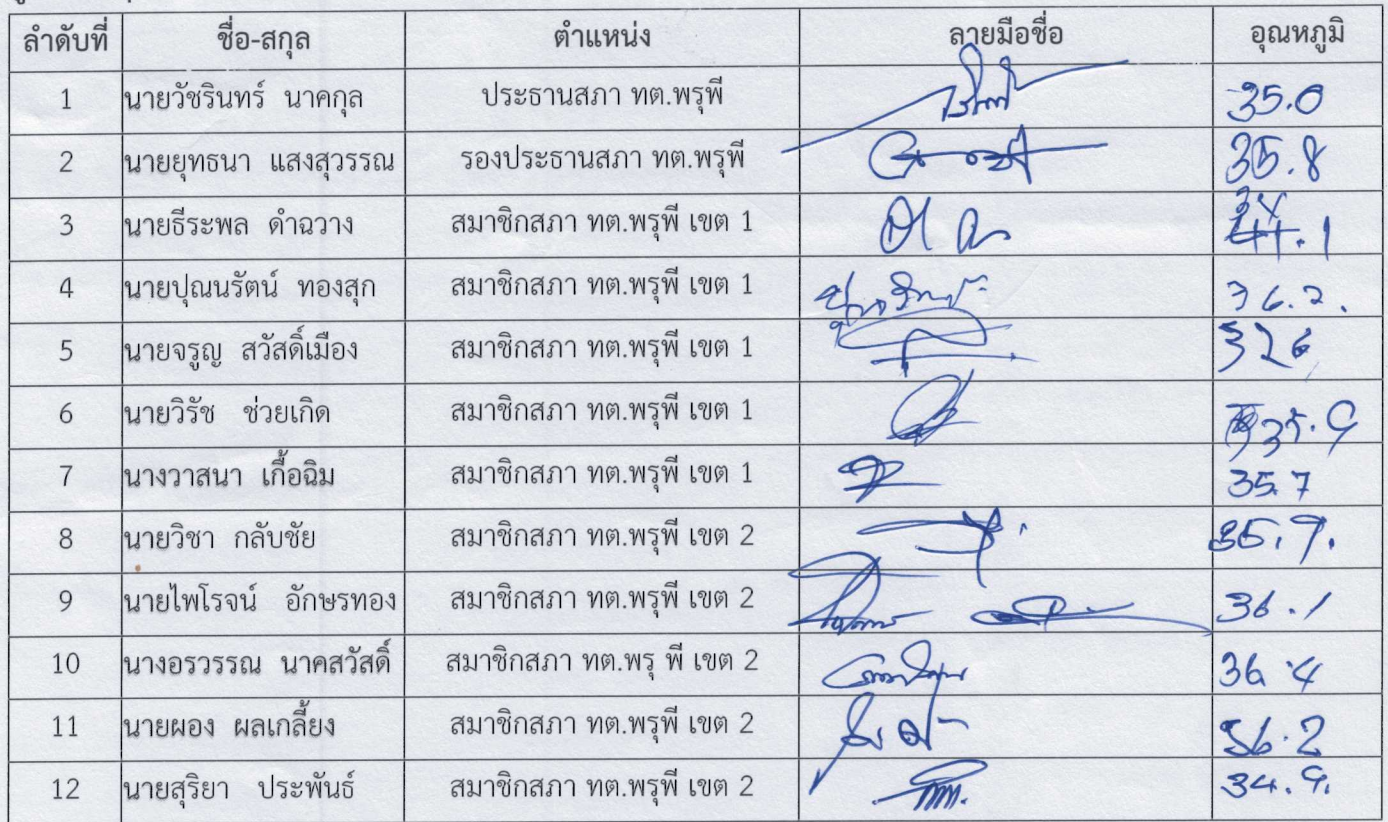 ลำดับที่ ชื่อ-สกุล ตำแหน่ง ลายมือชื่อ อุณหภูมิ
1 นายวัชรินทร์ นาคกุล ประธานสภา ทต.พรุพี 35.0
2 นายยุทธนา แสงสุวรรณ รองประธานสภา ทต.พรุพี 35.8
3 นายธีระพล ดำฉวาง สมาชิกสภา ทต.พรุพี เขต 1
4 นายปุณนรัตน์ ทองสุก สมาชิกสภา ทต.พรุพี เขต 1 36.2.
5 นายจรูญ สวัสดิ์เมือง สมาชิกสภา ทต.พรุพี เขต 1
6 นายวิรัช ช่วยเกิด สมาชิกสภา ทต.พรุพี เขต 1 35.9
7 นางวาสนา เกื้อฉิม สมาชิกสภา ทต.พรุพี เขต 1 35.7
8 นายวิชา กลับชัย สมาชิกสภา ทต.พรุพี เขต 2
9 นายไพโรจน์ อักษรทอง สมาชิกสภา ทต.พรุพี เขต 2 36.1
10 นางอรวรรณ นาคสวัสดิ์ สมาชิกสภา ทต.พรุ พี เขต 2 36.4
11 นายผอง ผลเกลี้ยง สมาชิกสภา ทต.พรุพี เขต 2 36.2
12 นายสุริยา ประพันธ์ สมาชิกสภา ทต.พรุพี เขต 2 34.9.